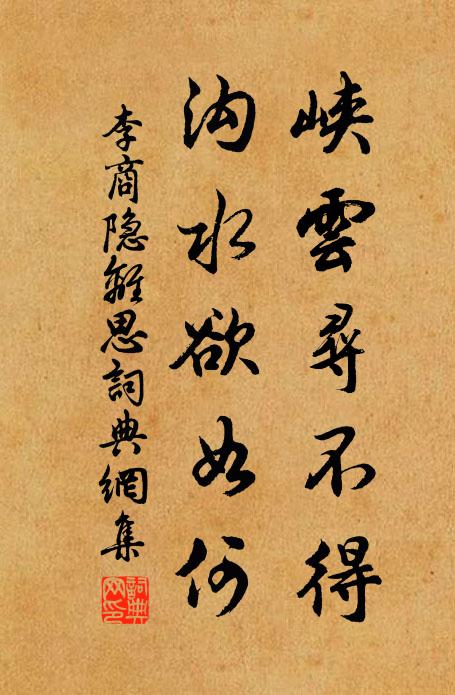 峽雲尋不得
沟水欲如何
李商隐離思詞典網集
詞典網印